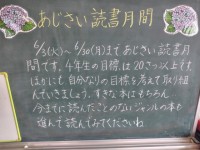 あじさい読書月間
6/3(火)〜6/30(月)まであじさい読書月
間です。4年生の目標は20さつ以上です。
ほかにも自分なりの目標を考えて取り組
んでいきましょう。すきな本はもちろん、
今までに読んだことのないジャンルの本も
進んで読んでみてくださいね